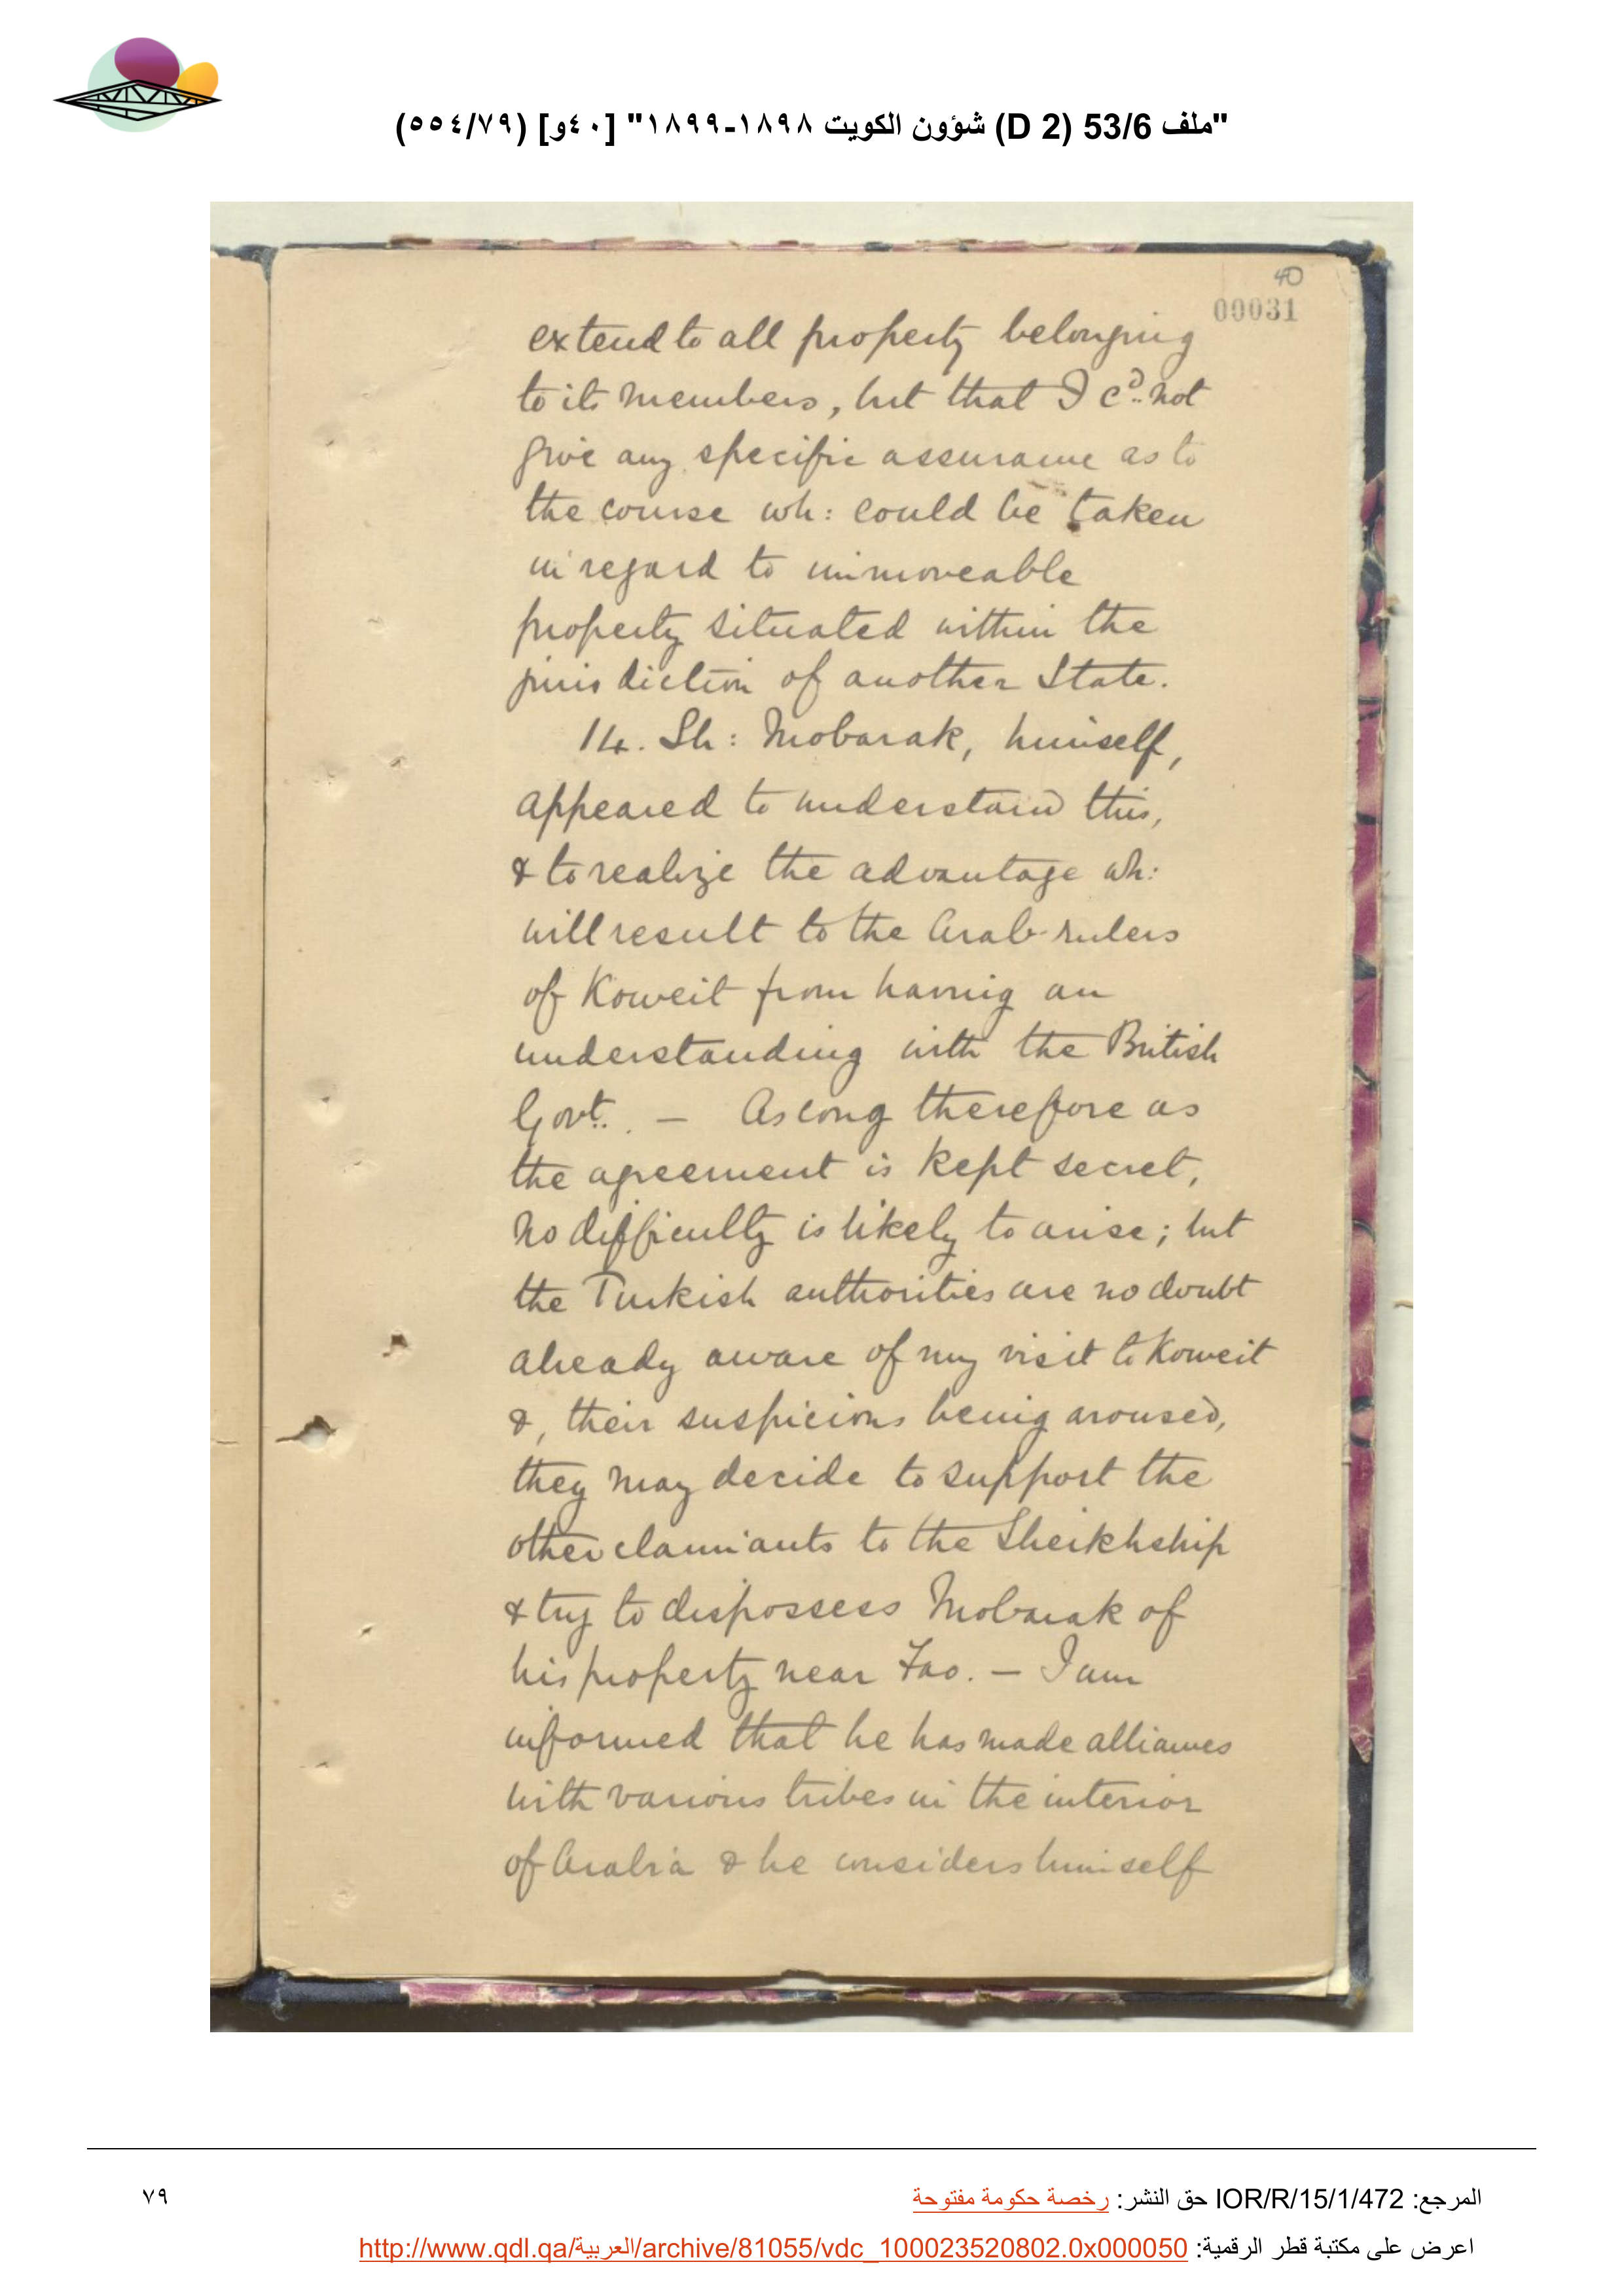 "ملف 53/6 (D 2) شؤون الكويت ١٨٩٨-١٨٩٩" [٤٠و] (٥٥٤/٧٩)
40
00031
extend to all property belonging
to its members, but that I cd. not
give any specific assurance as to
the course wh: could be taken
in regard to immoveable
property situated within the
jurisdiction of another State.
14. Sh: Mobarak, himself,
appeared to understand this,
& to realize the advantage wh:
will result to the Arab rulers
of Koweit from having an
understanding with the British
Govt. — As long therefore as
the agreement is kept secret,
no difficulty is likely to arise; but
the Turkish authorities are no doubt
already aware of my visit to Koweit
&, their suspicions being aroused,
they may decide to support the
other claimants to the Sheikhship
& try to dispossess Mobarak of
his property near Fao. — I am
informed that he has made alliances
with various tribes in the interior
of Arabia & he considers himself
المرجع: IOR/R/15/1/472 حق النشر: رخصة حكومة مفتوحة
٧٩
اعرض على مكتبة قطر الرقمية: http://www.qdl.qa/العربية/archive/81055/vdc_100023520802.0x000050